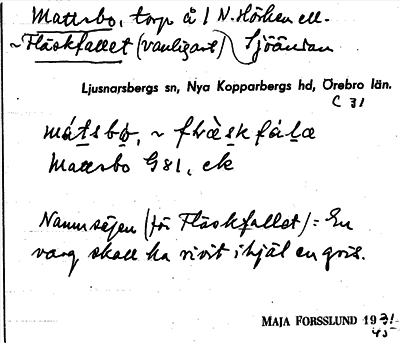 Mattsbo, torp å 1 N. Hörken ell.
~ Fläskfallet (vanligast) Sjöändan
Ljusnarsbergs sn, Nya Kopparbergs hd, Örebro län.
C 31
mátsbo, ~ flæskfála
Mattsbo G81, ek
Namnsägen (för Fläskfallet): En
varg skall ha rivit ihjäl en gris.
MAJA FORSSLUND 1931
45